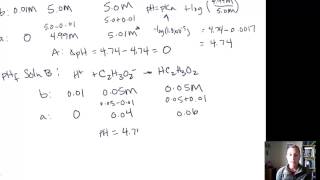 b: 0.01m 5.0m 5.0m pH = pKa + log
5.0-0.01 5.0+0.01
a: 0 4.99m 5.01m = 4.74 - 0.0017
A: ΔpH = 4.74 - 4.74 = 0 4.74
pHf Soln B: H+ + C2H3O2- → HC2H3O2
b: 0.01 0.05m 0.05m
0.05-0.01 0.05+0.01
a: 0 0.04 0.06
pH = 4.7